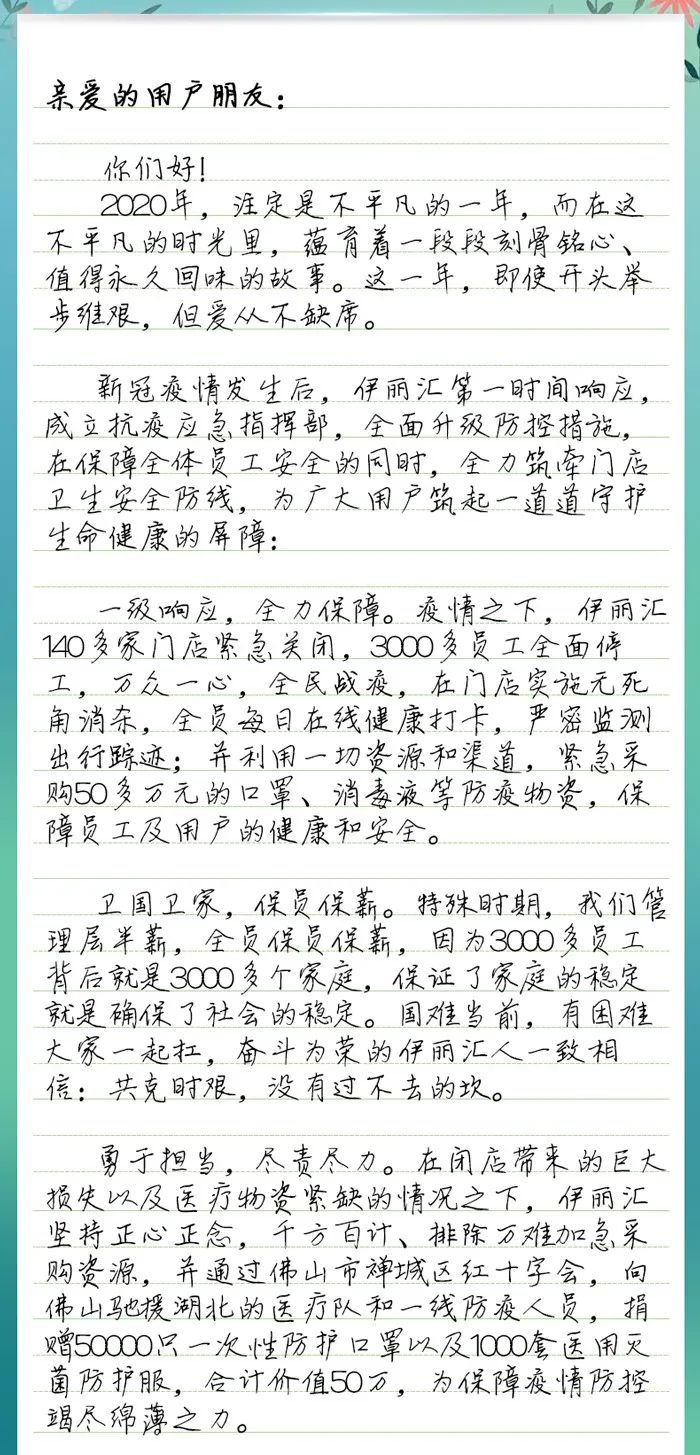 亲爱的用户朋友：
你们好！
2020年，注定是不平凡的一年，而在这
不平凡的时光里，蕴育着一段段刻骨铭心、
值得永久回味的故事。这一年，即使开头举
步维艰，但爱从不缺席。
新冠疫情发生后，伊丽汇第一时间响应，
成立抗疫应急指挥部，全面升级防控措施，
在保障全体员工安全的同时，全力筑牵门店
卫生安全防线，为广大用户筑起一道道守护
生命健康的屏障：
一级响应，全力保障。疫情之下，伊丽汇
140多家门店紧急关闭，3000多员工全面停
工，万众一心，全民战疫，在门店实施无死
角消杀，全员每日在线健康打卡，严密监测
出行踪迹；并利用一切资源和渠道，紧急采
购50多万元的口罩、消毒液等防疫物资，保
障员工及用户的健康和安全。
卫国卫家，保员保薪。特殊时期，我们管
理层半薪，全员保员保薪，因为3000多员工
背后就是3000多个家庭，保证了家庭的稳定
就是确保了社会的稳定。国难当前，有困难
大家一起扛，奋斗为荣的伊丽汇人一致相
信：共克时艰，没有过不去的坎。
勇于担当，尽责尽力。在闭店带来的巨大
损失以及医疗物资紧缺的情况之下，伊丽汇
坚持正心正念，千方百计、排除万难加急采
购资源，并通过佛山市禅城区红十字会，向
佛山驰援湖北的医疗队和一线防疫人员，捐
赠50000只一次性防护口罩以及1000套医用灭
菌防护服，合计价值50万，为保障疫情防控
竭尽绵薄之力。